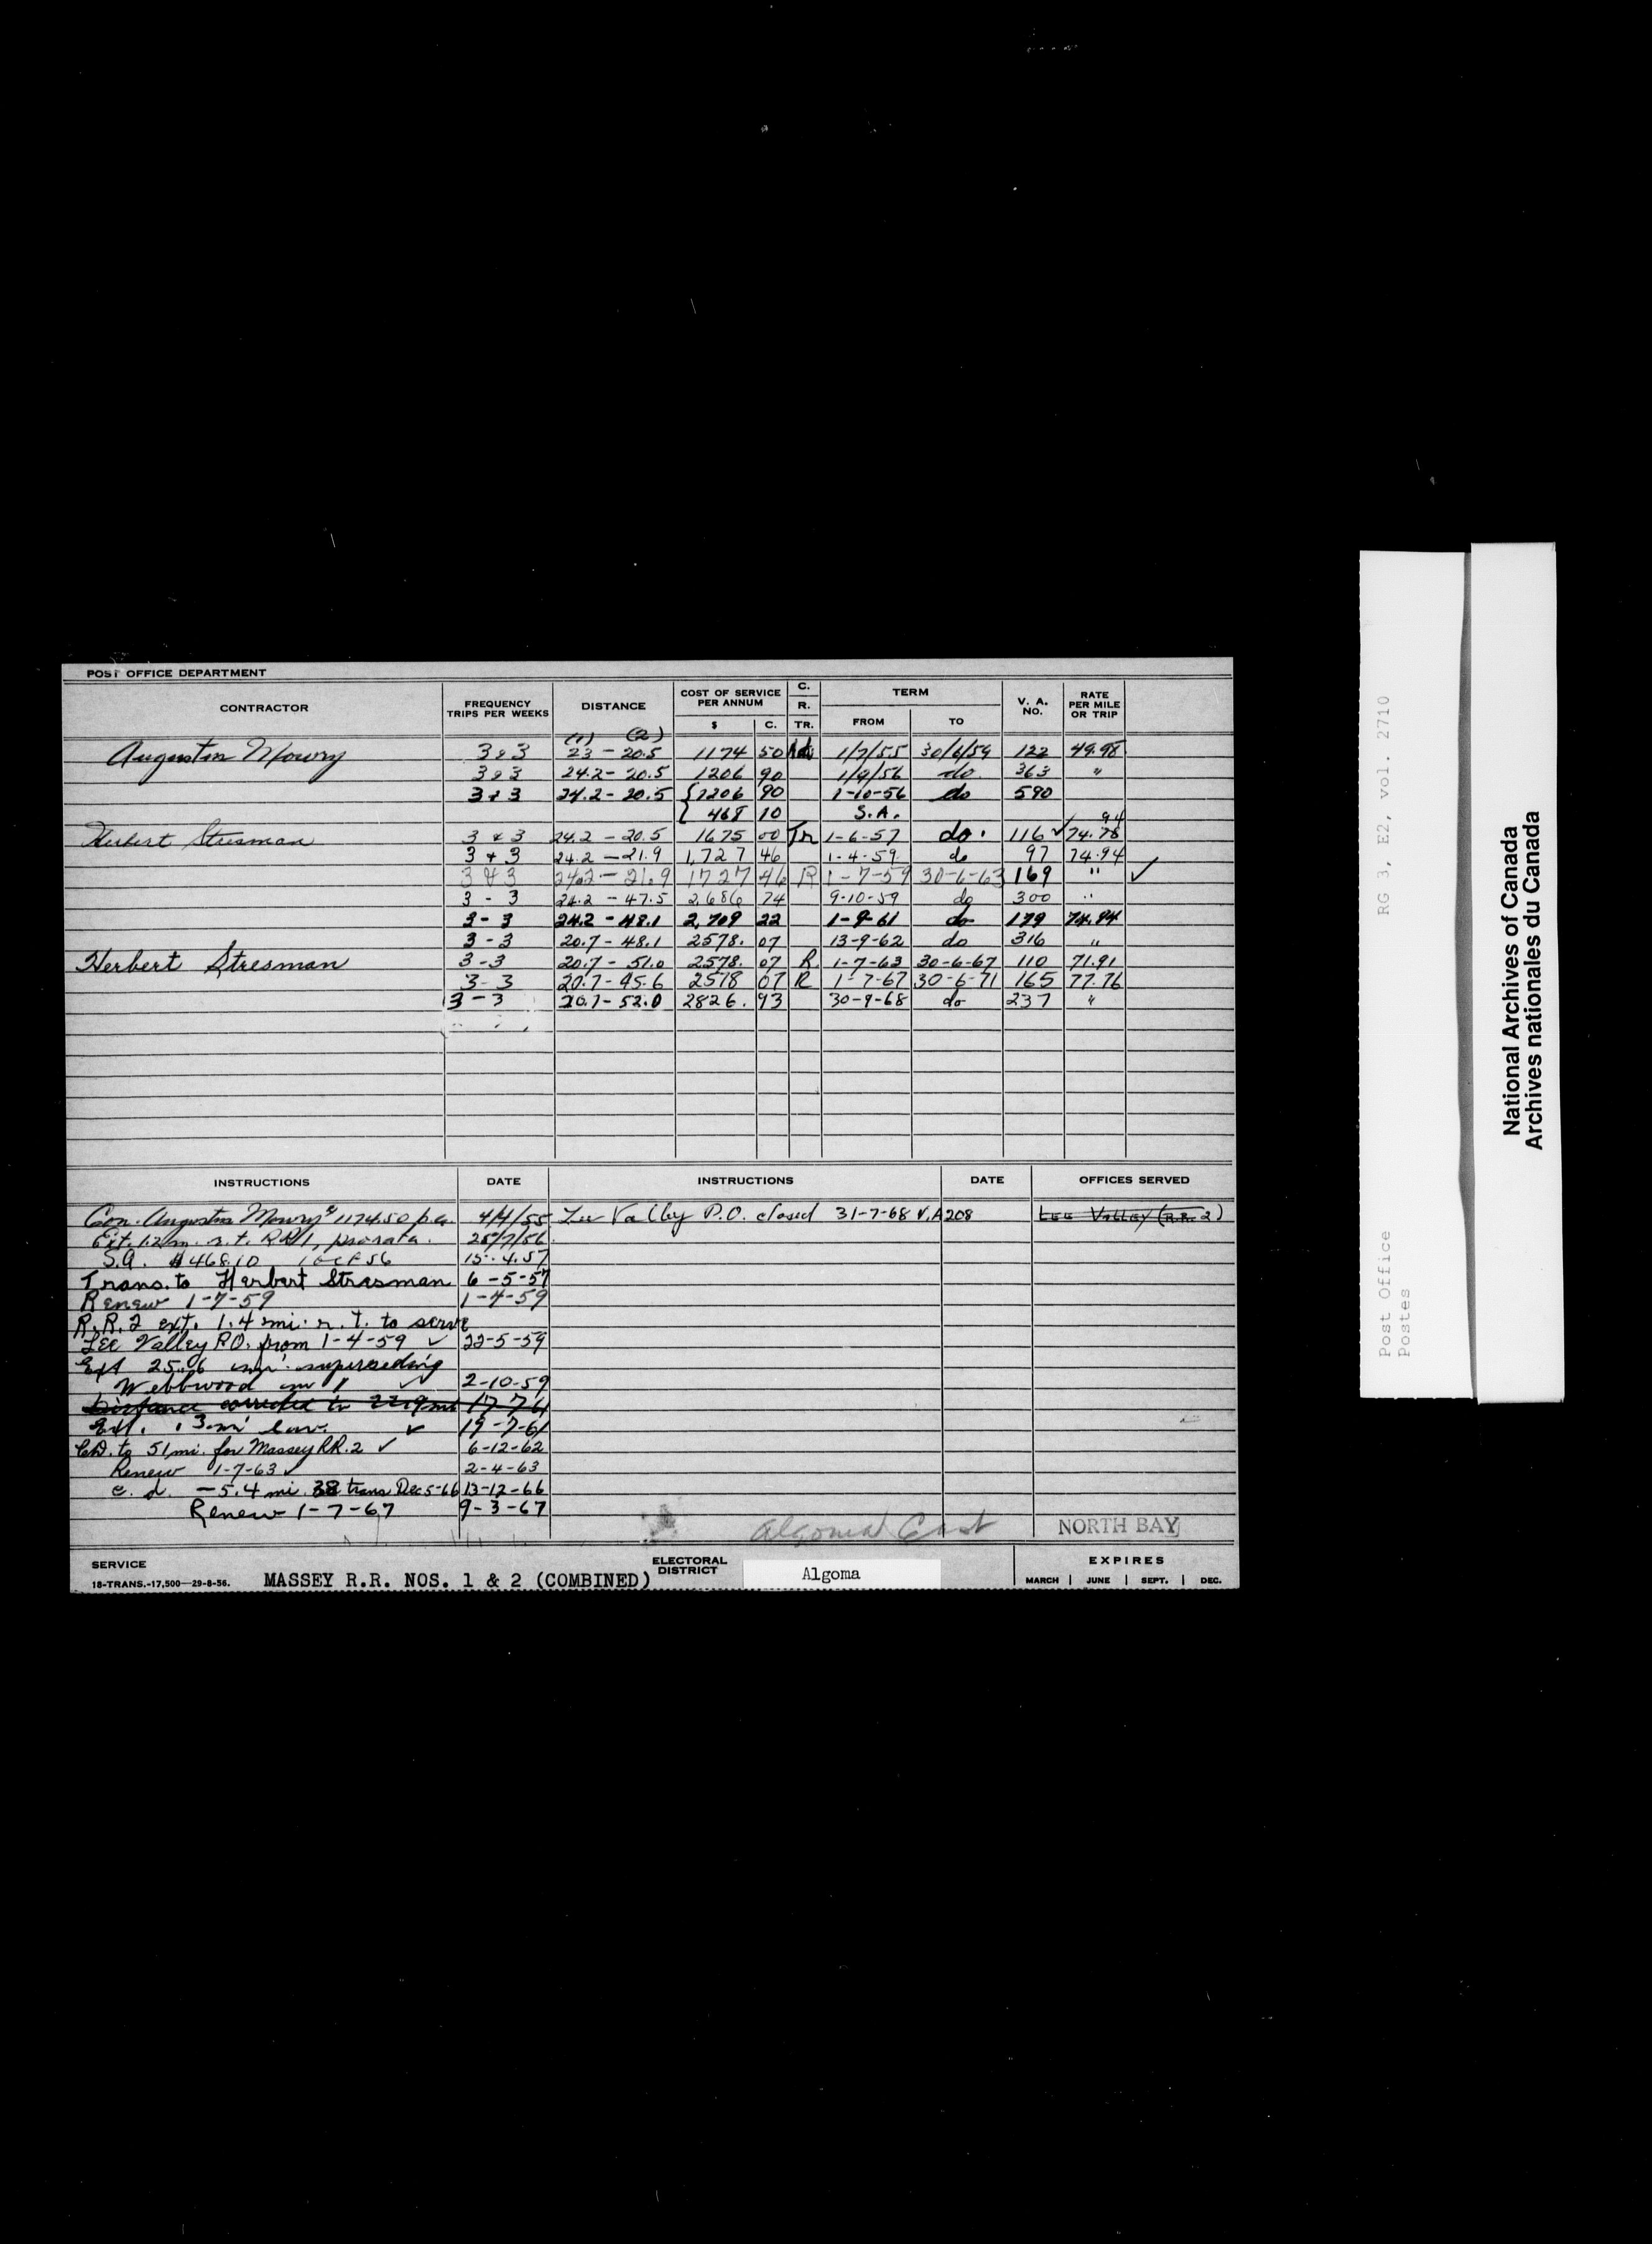 POST OFFICE DEPARTMENT
CONTRACTOR FREQUENCY TRIPS PER WEEKS DISTANCE COST OF SERVICE PER ANNUM $ C. C. R. TR. TERM FROM TO V. A. NO. RATE PER MILE OR TRIP
(1) (2)
Augustin Mowry 3 & 3 23 - 20.5 1174 50 1/7/55 30/6/59 122 49.98
3 & 3 24.2 - 20.5 1206 90 do 363 "
3 & 3 24.2 - 20.5 { 1206 90 1-10-56 do 590
{ 468 10 S.A.
94
Herbert Stresman 3 & 3 24.2 - 20.5 1675 00 Tr 1-6-57 do. 116 ✓ 74.78
3 + 3 24.2 - 21.9 1,727 46 1-4-59 do 97 74.94
3 & 3 24.2 - 21.9 1727 46 R 1-7-59 30-6-63 169 " ✓
3 - 3 24.2 - 47.5 2,686 74 9-10-59 do 300 "
3 - 3 24.2 - 48.1 2,709 22 1-9-61 do 179 74.94
3 - 3 20.7 - 48.1 2578. 07 13-9-62 do 316 "
Herbert Stresman 3-3 20.7 - 51.0 2578. 07 R 1-7-63 30-6-67 110 71.91
3-3 20.7 - 45.6 2578 07 R 1-7-67 30-6-71 165 77.76
3-3 20.7 - 52.0 2826. 93 30-9-68 do 237 "
INSTRUCTIONS DATE INSTRUCTIONS DATE OFFICES SERVED
Con. Augustin Mowry $1174.50 p.a. 4/4/55 Lee Valley P.O. closed 31-7-68 V.A 208 Lee Valley (R.R. 2)
Ext. 1.2 m. r.t. RR 1, prorata. 25/7/56
S.A. $468.10 1 Oct 56 15-4-57
Trans. to Herbert Stresman 6-5-57
Renew 1-7-59 1-4-59
R.R.2 ext. 1.4 mi. r.t. to serve
Lee Valley P.O. from 1-4-59 ✓ 22-5-59
Ext 25.6 mi superseding
Webbwood ✓ 2-10-59
Distance corrected to 22.9 mi 17-7-61
Ext. .3 mi ✓ 19-7-61
C.D. to 51 mi. for Massey R.R.2 ✓ 6-12-62
Renew 1-7-63 ✓ 2-4-63
c. d. - 5.4 mi. 38 trans Dec 5-66 13-12-66
Renew 1-7-67 9-3-67
Algoma East NORTH BAY
SERVICE
18-TRANS.-17,500—29-8-56. MASSEY R.R. NOS. 1 & 2 (COMBINED) ELECTORAL DISTRICT Algoma EXPIRES
MARCH | JUNE | SEPT. | DEC.
Post Office RG 3, E2, vol. 2710
Postes
National Archives of Canada
Archives nationales du Canada